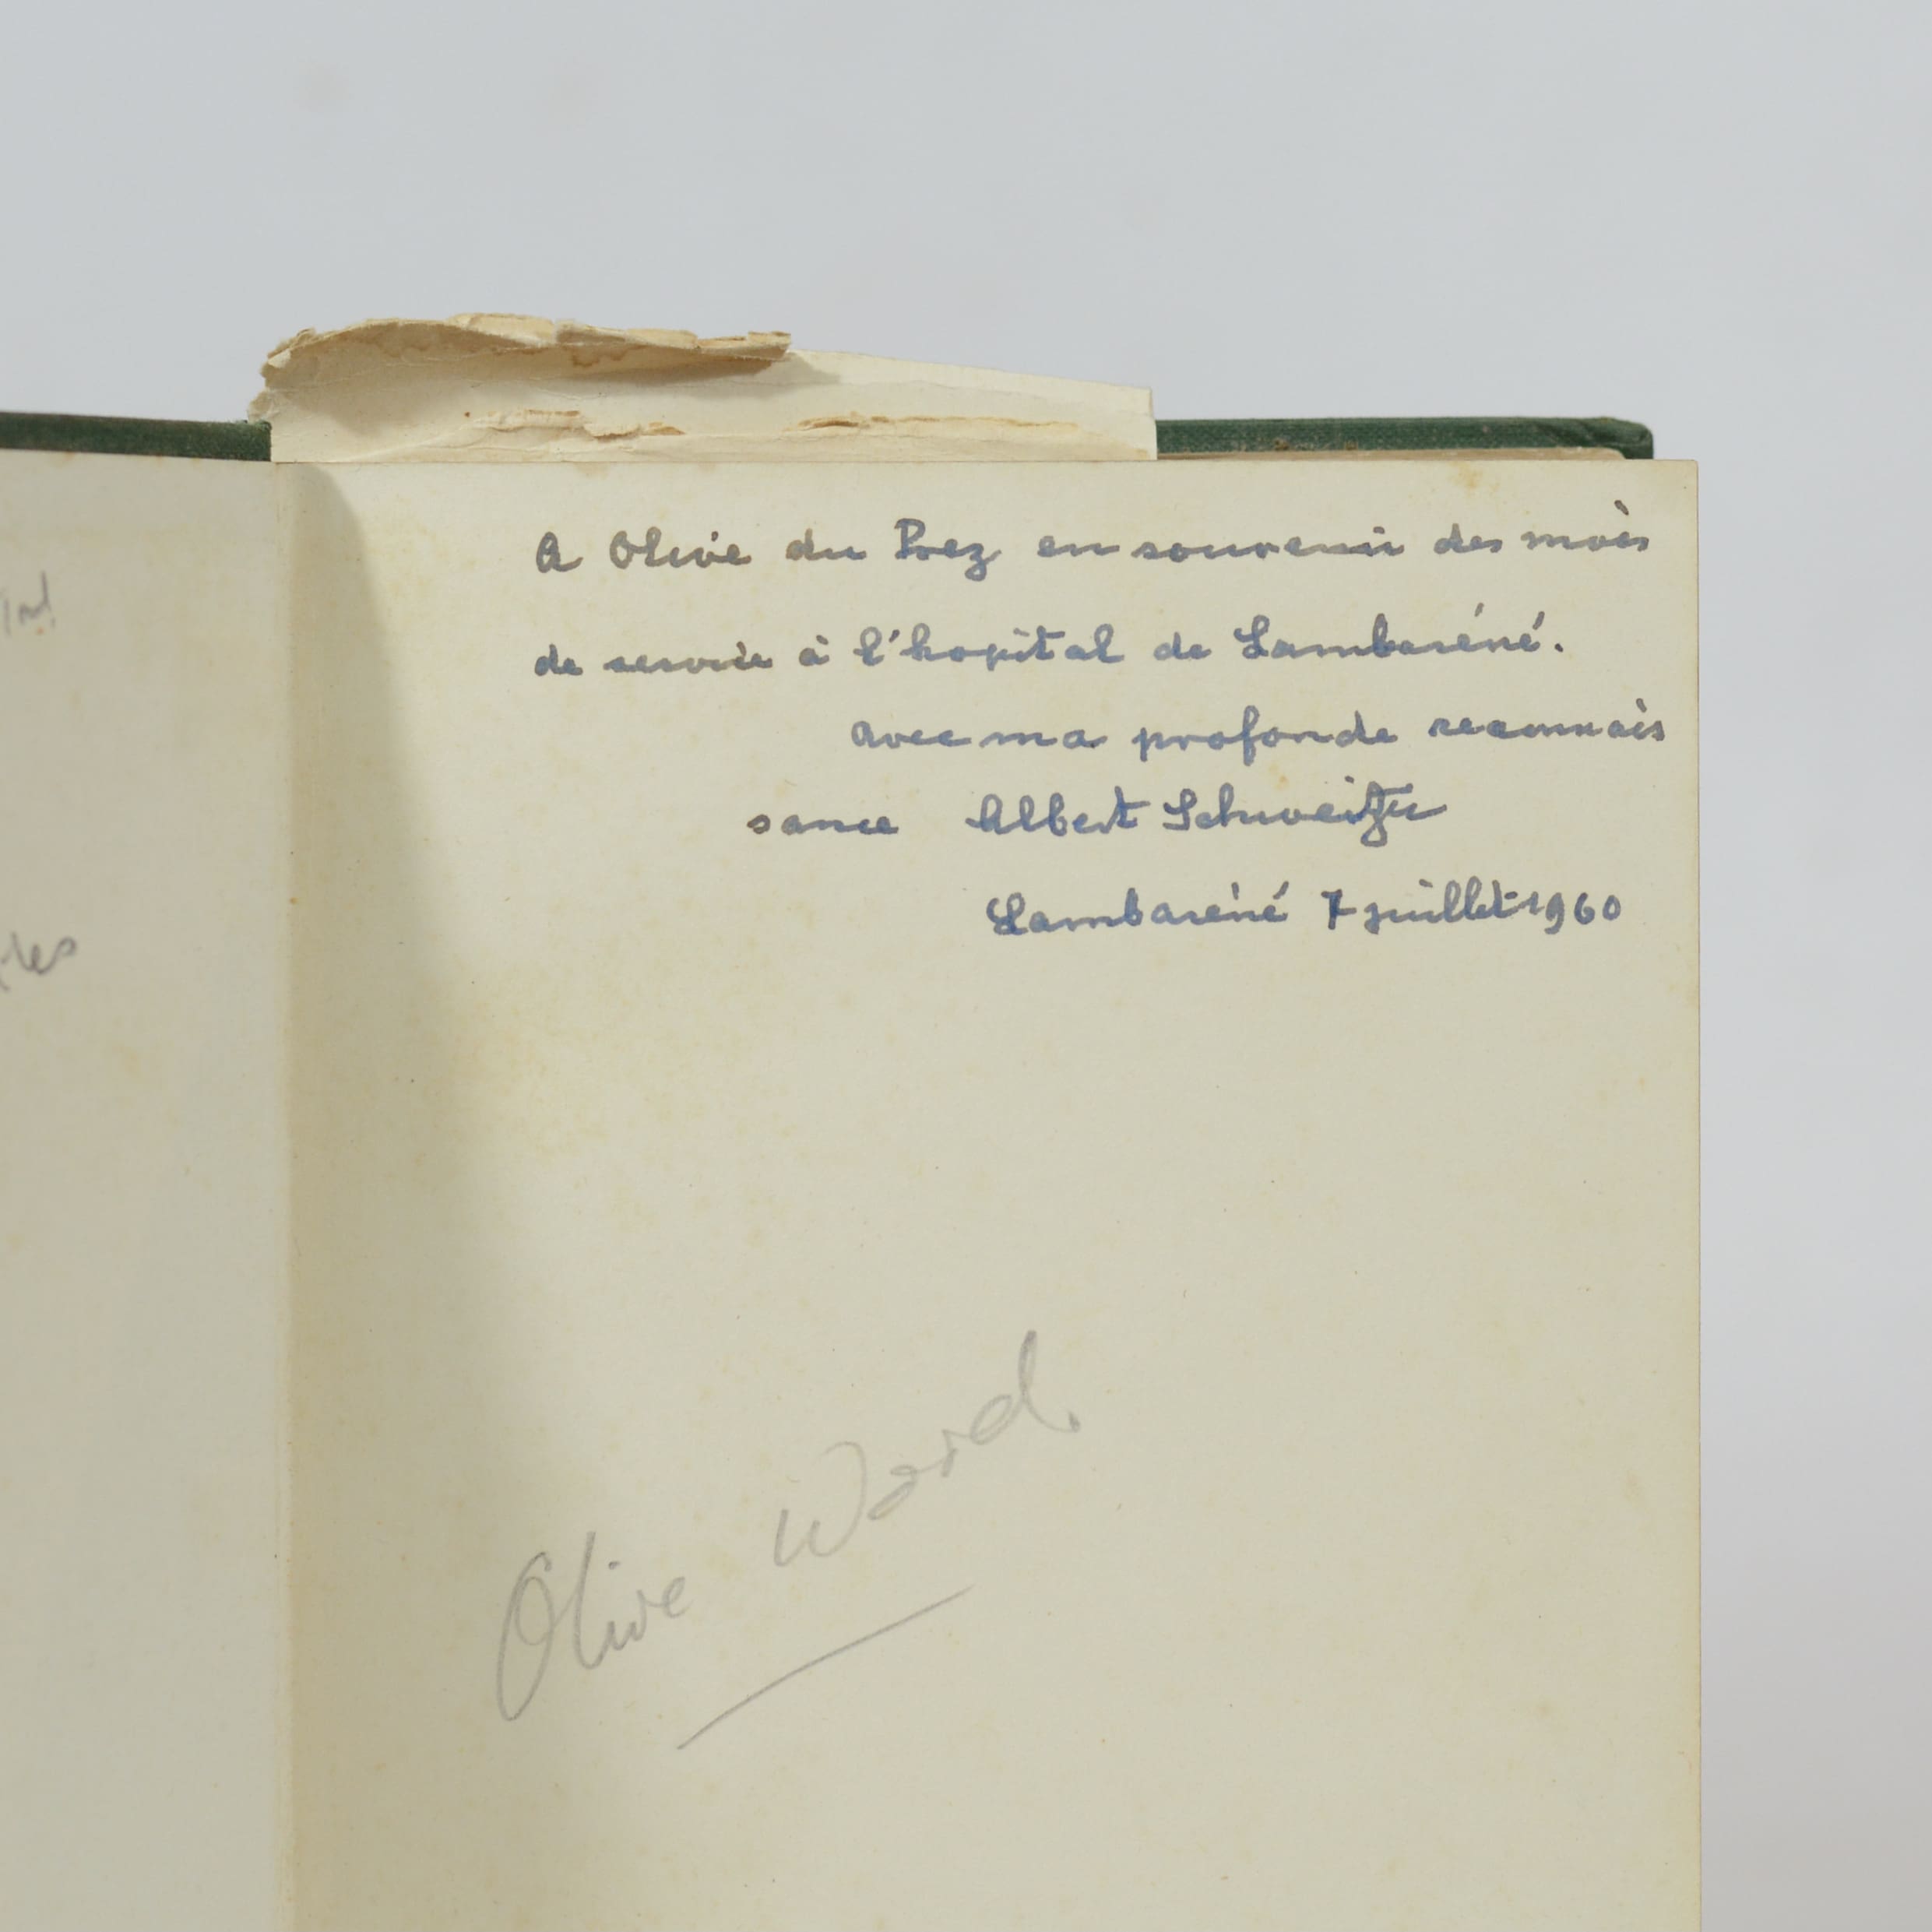 A Olive du Prez en souvenir des mois
de service à l'hopital de Lambaréné.
avec ma profonde reconnais
sance Albert Schweitzer
Lambaréné 7 juillet 1960
Olive Ward